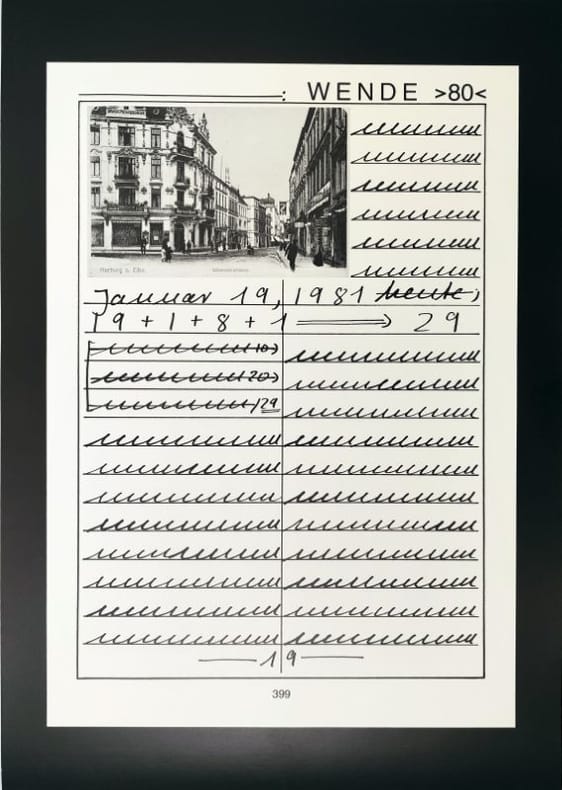 : WENDE >80<
Harburg a. Elbe
Januar 19, 1981 heute,
19 + 1 + 8 + 1 ⟹ 29
10)
20)
/29
19
399